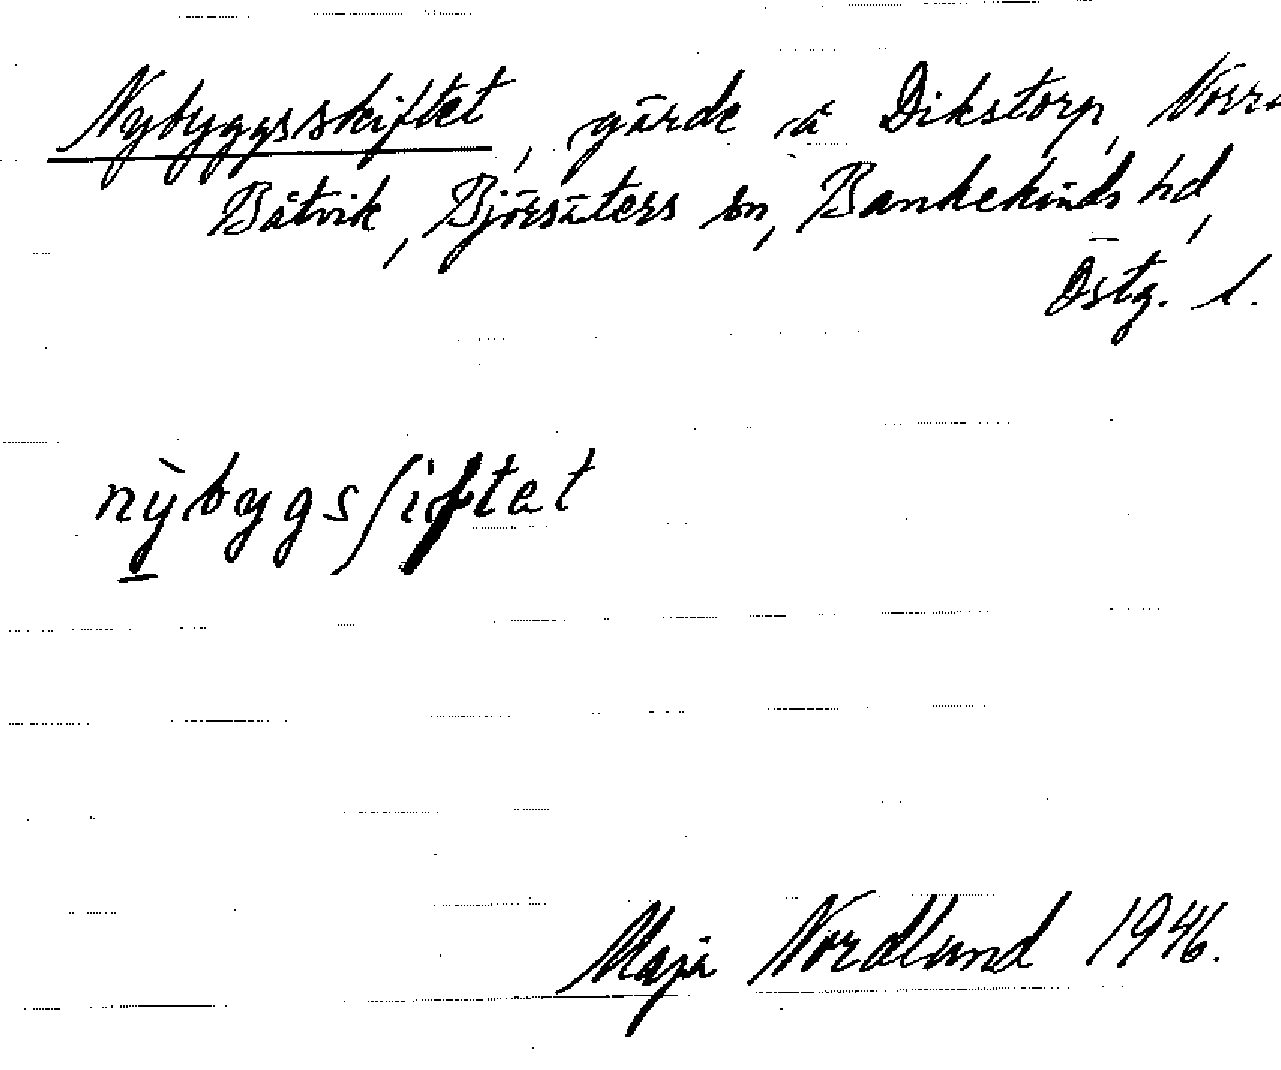 Nybyggsskiftet, gärde å Dikstorp, Norra
Båtvik, Björsäters sn, Bankekinds hd,
Östg. l.
nỳbygsʃiftet
Maja Nordlund 1946.